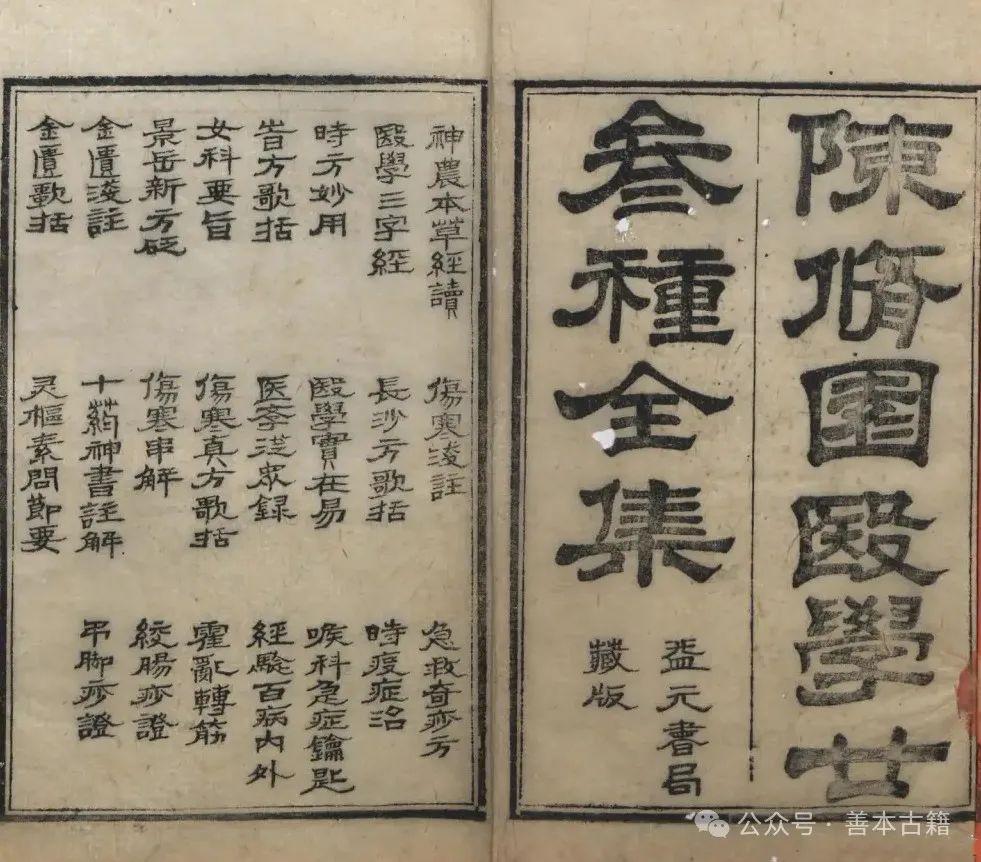 陳脩園毉學廿
叄種全集
益元書局
藏版
神農本草經讀
毉學三字經
時方妙用
旹方歌括
女科要旨
景岳新方砭
金匱淺註
金匱歌括
傷寒淺註
長沙方歌括
毉學實在易
医斈從眾録
傷寒真方歌括
傷寒串解
十葯神書註解
灵樞素問節要
急救奇痧方
時疫症治
喉科急症鑰匙
經驗百病内外
霍亂轉筋
絞腸痧證
弔脚痧證
公众号 · 善本古籍